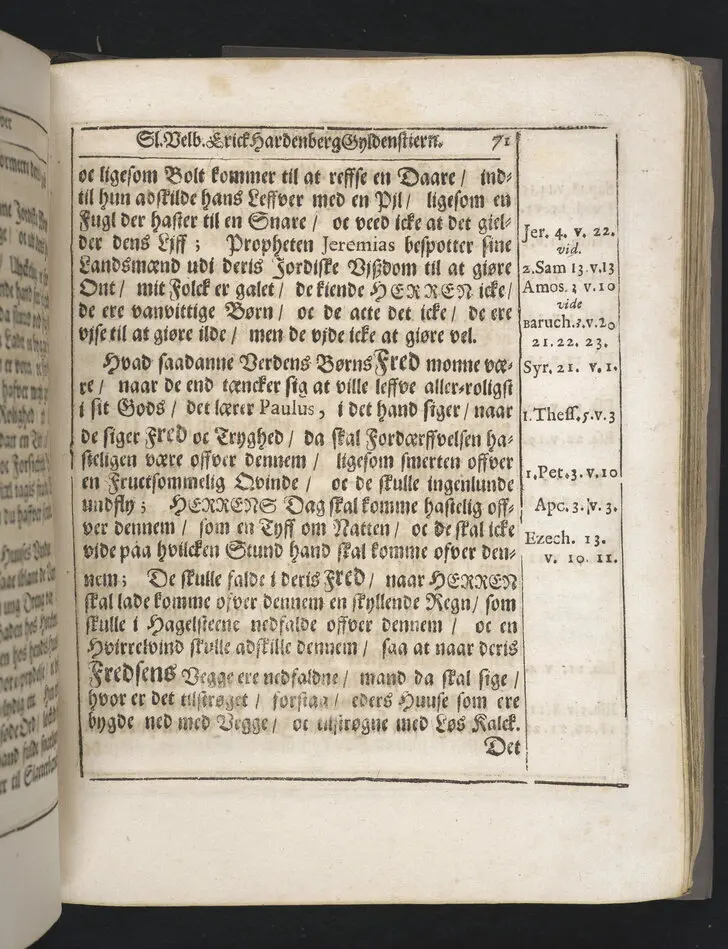 Sl. Velb. Erick Hardenberg Gyldenstiern. 71
oc ligesom Bolt kommer til at reffse en Daare / ind-
til hun adskilde hans Leffver med en Pjl / ligesom en
Fugl der haster til en Snare / oc veed icke at det giel-
der dens Ljff ; Propheten Jeremias bespotter sine
Landsmænd udi deris Jordiske Vjßdom til at giøre
Ont / mit Folck er galet / de kiende HERREN icke /
de ere vanvittige Børn / oc de acte det icke / de ere
vjse til at giøre ilde / men de vjde icke at giøre vel.
Hvad saadanne Verdens Børns Fred monne væ-
re / naar de end tæncker sig at ville leffve aller-roligst
i sit Gods / det lærer Paulus, i det hand siger / naar
de siger Fred oc Tryghed / da skal Fordærffvelsen ha-
steligen være offver dennem / ligesom smerten offver
en Fructsommelig Qvinde / oc de skulle ingenlunde
undfly ; HERRENS Dag skal komme hastelig off-
ver dennem / som en Tyff om Natten / oc de skal icke
vide paa hvilcken Stund hand skal komme ofver den-
nem ; De skulle falde i deris Fred / naar HERREN
skal lade komme ofver dennem en skyllende Regn / som
skulle i Hagelsteene nedfalde offver dennem / oc en
Hvirrelvind skulle adskille dennem / saa at naar deris
Fredsens Vegge ere nedfaldne / mand da skal sige /
hvor er det tilstrøget / forstaa / eders Huuse som ere
bygde ned med Vegge / oc tilstrøgne med Løs Kalck.
Det
Jer. 4. v. 22.
vid.
2. Sam 13. v. 13
Amos. 3 v. 10
vide
Baruch. 3. v. 20
21. 22. 23.
Syr. 21. v. 1.
1. Thess. 5. v. 3
1. Pet. 3. v. 10
Apc. 3. v. 3.
Ezech. 13.
v. 10 11.